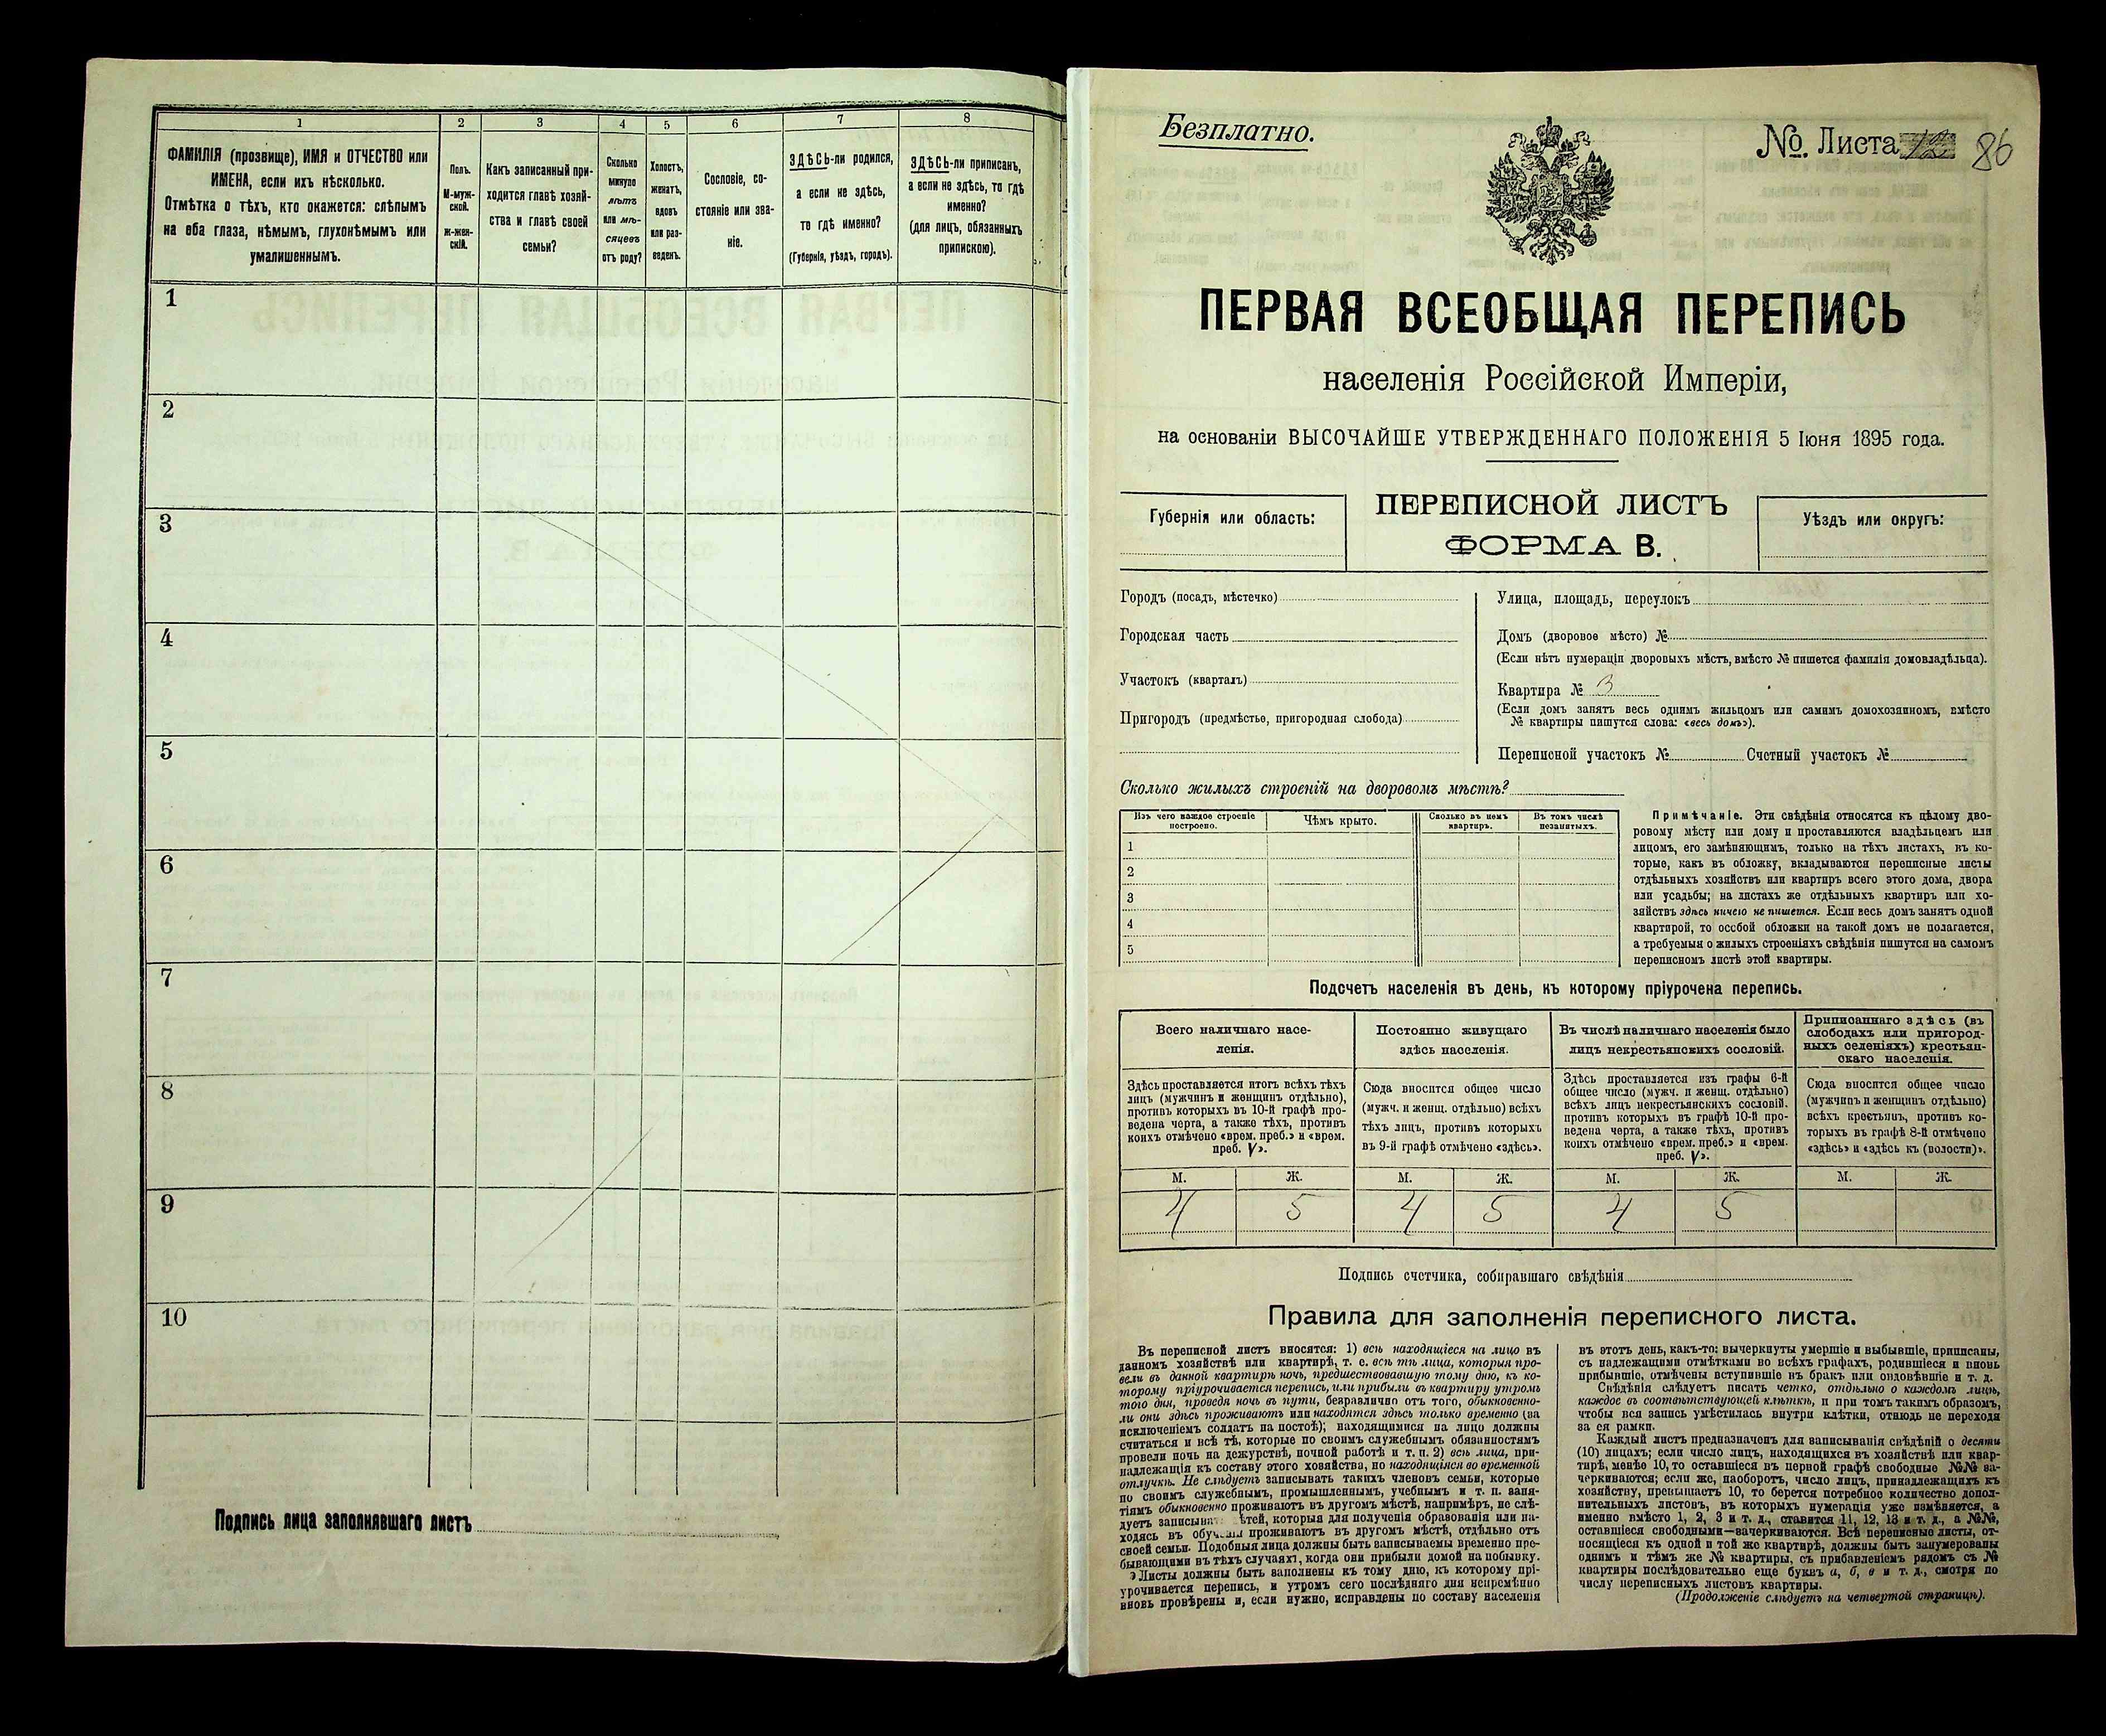 1
2
3
4
5
6
7
8
ФАМИЛІЯ (прозвище), ИМЯ и ОТЧЕСТВО или
ИМЕНА, если ихъ нѣсколько.
Отмѣтка о тѣхъ, кто окажется: слѣпымъ
на оба глаза, нѣмымъ, глухонѣмымъ или
умалишеннымъ.
Полъ.
М-муж-
ской.
ж-жен-
скій.
Какъ записанный при-
ходится главѣ хозяй-
ства и главѣ своей
семьи?
Сколько
минуло
лѣтъ
или мѣ-
сяцевъ
отъ роду?
Холостъ,
женатъ,
вдовъ
или раз-
веденъ.
Сословіе, со-
стояніе или зва-
ніе.
ЗДѢСЬ-ли родился,
а если не здѣсь,
то гдѣ именно?
(Губернія, уѣздъ, городъ).
ЗДѢСЬ-ли приписанъ,
а если не здѣсь, то гдѣ
именно?
(для лицъ, обязанныхъ
припискою).
1
2
3
4
5
6
7
8
9
10
Подпись лица заполнявшаго листъ
Безплатно.
№ Листа 86
ПЕРВАЯ ВСЕОБЩАЯ ПЕРЕПИСЬ
населенія Россійской Имперіи,
на основаніи ВЫСОЧАЙШЕ УТВЕРЖДЕННАГО ПОЛОЖЕНІЯ 5 Іюня 1895 года.
Губернія или область:
ПЕРЕПИСНОЙ ЛИСТЪ
ФОРМА В.
Уѣздъ или округъ:
Городъ (посадъ, мѣстечко)
Городская часть
Участокъ (кварталъ)
Пригородъ (предмѣстье, пригородная слобода)
Улица, площадь, переулокъ
Домъ (дворовое мѣсто) №
(Если нѣтъ нумераціи дворовыхъ мѣстъ, вмѣсто № пишется фамилія домовладѣльца).
Квартира № 3
(Если домъ занятъ весь однимъ жильцомъ или самимъ домохозяиномъ, вмѣсто
№ квартиры пишутся слова: «весь домъ»).
Переписной участокъ № Счетный участокъ №
Сколько жилыхъ строеній на дворовомъ мѣстѣ?
Изъ чего каждое строеніе
построено.
Чѣмъ крыто.
Сколько въ немъ
квартиръ.
Въ томъ числѣ
незанятыхъ.
1
2
3
4
5
Примѣчаніе. Эти свѣдѣнія относятся къ цѣлому дво-
ровому мѣсту или дому и проставляются владѣльцемъ или
лицомъ, его замѣняющимъ, только на тѣхъ листахъ, въ ко-
торые, какъ въ обложку, вкладываются переписные листы
отдѣльныхъ хозяйствъ или квартиръ всего этого дома, двора
или усадьбы; на листахъ же отдѣльныхъ квартиръ или хо-
зяйствъ здѣсь ничего не пишется. Если весь домъ занятъ одной
квартирой, то особой обложки на такой домъ не полагается,
а требуемыя о жилыхъ строеніяхъ свѣдѣнія пишутся на самомъ
переписномъ листѣ этой квартиры.
Подсчетъ населенія въ день, къ которому пріурочена перепись.
Всего наличнаго насе-
ленія.
Постоянно живущаго
здѣсь населенія.
Въ числѣ наличнаго населенія было
лицъ некрестьянскихъ сословій.
Приписаннаго здѣсь (въ
слободахъ или пригород-
ныхъ селеніяхъ) крестьян-
скаго населенія.
Здѣсь проставляется итогъ всѣхъ тѣхъ
лицъ (мужчинъ и женщинъ отдѣльно),
противъ которыхъ въ 10-й графѣ про-
ведена черта, а также тѣхъ, противъ
коихъ отмѣчено «врем. преб.» и «врем.
преб. V».
Сюда вносится общее число
(мужч. и женщ. отдѣльно) всѣхъ
тѣхъ лицъ, противъ которыхъ
въ 9-й графѣ отмѣчено «здѣсь».
Здѣсь проставляется изъ графы 6-й
общее число (мужч. и женщ. отдѣльно)
всѣхъ лицъ некрестьянскихъ сословій.
противъ которыхъ въ графѣ 10-й про-
ведена черта, а также тѣхъ, противъ
коихъ отмѣчено «врем. преб.» и «врем.
преб. V».
Сюда вносится общее число
(мужчинъ и женщинъ отдѣльно)
всѣхъ крестьянъ, противъ ко-
торыхъ въ графѣ 8-й отмѣчено
«здѣсь» и «здѣсь къ (волости)».
М. Ж. М. Ж. М. Ж. М. Ж.
4 5 4 5 4 5
Подпись счетчика, собиравшаго свѣдѣнія
Правила для заполненія переписного листа.
Въ переписной листъ вносятся: 1) всѣ находящіеся на лицо въ
данномъ хозяйствѣ или квартирѣ, т. е. всѣ тѣ лица, которыя про-
вели въ данной квартирѣ ночь, предшествовавшую тому дню, къ ко-
торому пріурочивается перепись, или прибыли въ квартиру утромъ
того дня, проведя ночь въ пути, безразлично отъ того, обыкновенно-
ли они здѣсь проживаютъ или находятся здѣсь только временно (за
исключеніемъ солдатъ на постоѣ); находящимися на лицо должны
считаться и всѣ тѣ, которые по своимъ служебнымъ обязанностямъ
провели ночь на дежурствѣ, ночной работѣ и т. п. 2) всѣ лица, при-
надлежащія къ составу этого хозяйства, но находящіяся во временной
отлучкѣ. Не слѣдуетъ записывать такихъ членовъ семьи, которые
по своимъ служебнымъ, промышленнымъ, учебнымъ и т. п. заня-
тіямъ обыкновенно проживаютъ въ другомъ мѣстѣ, напримѣръ, не слѣ-
дуетъ записыва ѣтей, которыя для полученія образованія или на-
ходясь въ обученіи проживаютъ въ другомъ мѣстѣ, отдѣльно отъ
своей семьи. Подобныя лица должны быть записываемы временно пре-
бывающими въ тѣхъ случаяхъ, когда они прибыли домой на побывку.
Листы должны быть заполнены къ тому дню, къ которому прі-
урочивается перепись, и утромъ сего послѣдняго дня непремѣнно
вновь провѣрены и, если нужно, исправлены по составу населенія
въ этотъ день, какъ-то: вычеркнуты умершіе и выбывшіе, приписаны,
съ надлежащими отмѣтками во всѣхъ графахъ, родившіеся и вновь
прибывшіе, отмѣчены вступившіе въ бракъ или овдовѣвшіе и т. д.
Свѣдѣнія слѣдуетъ писать четко, отдѣльно о каждомъ лицѣ,
каждое въ соотвѣтствующей клѣткѣ, и при томъ такимъ образомъ,
чтобы вся запись умѣстилась внутри клѣтки, отнюдь не переходя
за ея рамки.
Каждый листъ предназначенъ для записыванія свѣдѣній о десяти
(10) лицахъ; если число лицъ, находящихся въ хозяйствѣ или квар-
тирѣ, менѣе 10, то оставшіеся въ первой графѣ свободные №№ за-
черкиваются; если же, наоборотъ, число лицъ, принадлежащихъ къ
хозяйству, превышаетъ 10, то берется потребное количество допол-
нительныхъ листовъ, въ которыхъ нумерація уже измѣняется, а
именно вмѣсто 1, 2, 3 и т. д., ставится 11, 12, 13 и т. д., а №№,
оставшіеся свободными—зачеркиваются. Всѣ переписные листы, от-
носящіеся къ одной и той же квартирѣ, должны быть занумерованы
однимъ и тѣмъ же № квартиры, съ прибавленіемъ рядомъ съ №
квартиры послѣдовательно еще буквъ а, б, в и т. д., смотря по
числу переписныхъ листовъ квартиры.
(Продолженіе слѣдуетъ на четвертой страницѣ).